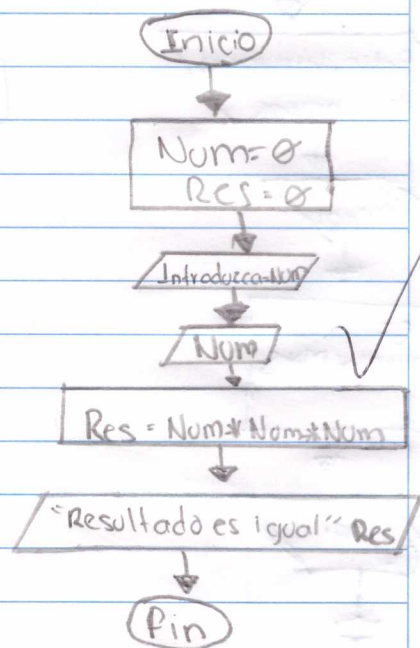 Inicio
Num=0
Res=0
Introduzca Num
Num
Res = Num*Num*Num
"Resultado es igual" Res
Fin